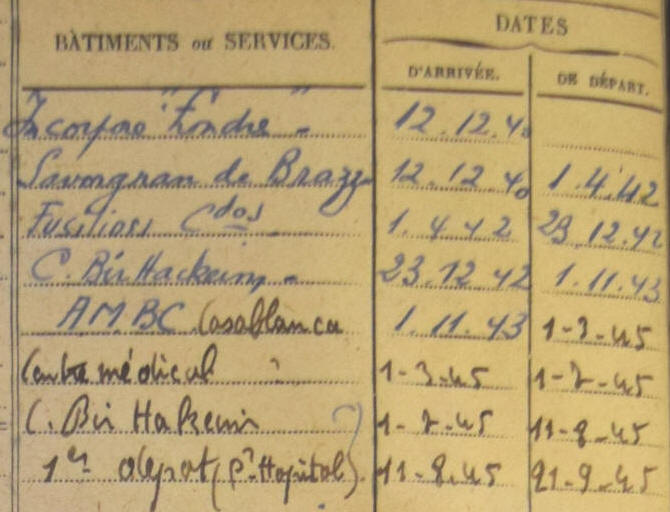 BÀTIMENTS ou SERVICES.
DATES
D'ARRIVÉE.
DE DÉPART.
Incorporé "Londre" - 12.12.40
Savorgnan de Brazz 12.12 40 1.4.42
Fusiliers Cdos - 1. 4 42 23.12.42
C. Bir Hackeim, - 23.12 42 1.11.43
AMBC Casablanca 1.11.43 1-3-45
Centre médical 1-3-45 1-7-45
C. Bir Hakeim 1-7-45 11-8-45
1er dépot (pr Hopital). 11-8.45 21-9-45